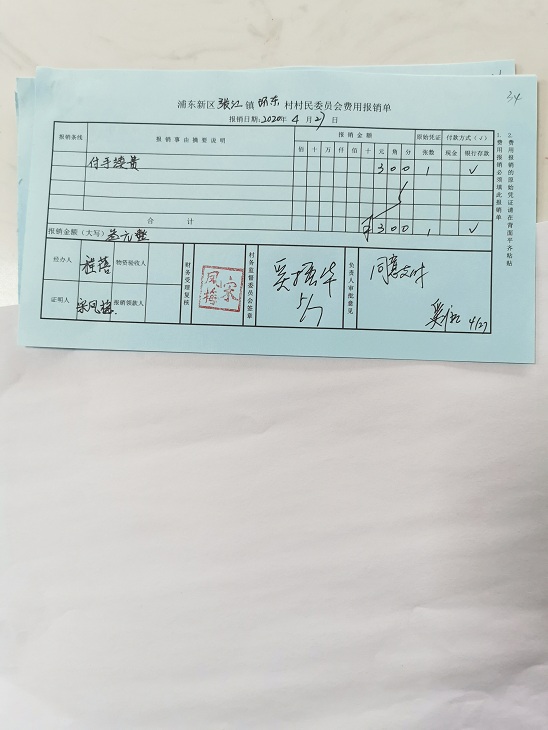 34
浦东新区张江镇环东村村民委员会费用报销单
报销日期:2020年4月27日
报销条线 报销事由摘要说明 报销金额 原始凭证 付款方式(√)
佰 十 万 仟 佰 十 元 角 分 张数 现金 银行存款
付手续费 3 0 0 1 √
合计 ¥ 3 0 0 1 √
报销金额(大写) 叁元整
经办人 程蓓 物资验收人
证明人 宋凤梅 报销领款人
财务受理复核
宋凤梅
村务监督委员会签章
5/7
负责人审批意见
同意支付
4/27
1.费用报销必须填此报销单
2.费用报销的原始凭证请在背面平齐粘贴